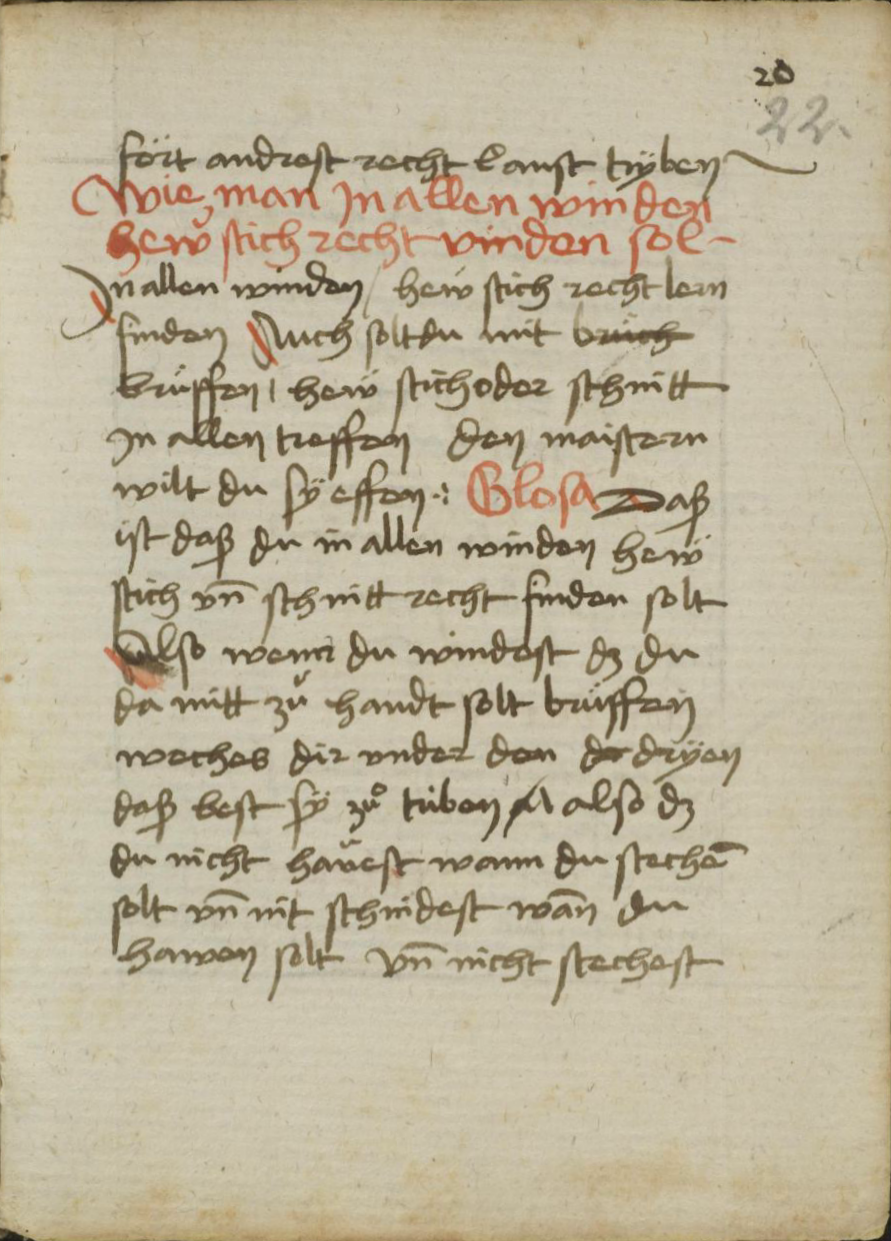 20
22.
fört andrest recht kanst tryben
Wie man In allen winden
hew stich recht vinden sol-
In allen winden / hew stich recht lern
finden Auch solt du mit bruch
brüffen / hew stich oder schnitt
In allen treffen den maistern
wilt du sÿ effen :· Glosa Daß
ist daß du in allen winden hew
stich vn̄ schnitt recht finden solt
Also wenn du windest dz du
da mitt zů handt solt brüffen
weches dir vnder den der dryen
daß best sÿ zů triben also dz
du nicht hauest wann du stechē
solt vn̄ nit schnidest wān du
hawen solt vn̄ nicht stechest